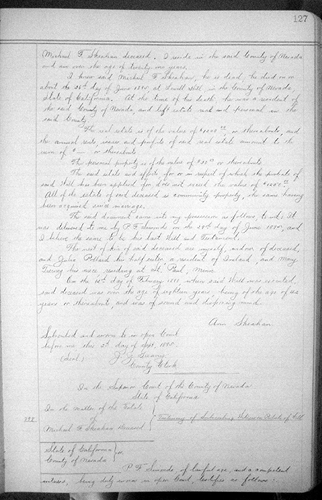 127
Michael F. Sheahan deceased; I reside in the said County of Nevada
and am over the age of twenty one years.
I knew said Michael F. Sheahan, he is dead, he died on or
about the day of June 1890, at in the County of Nevada
State of California. At the time of his death, he was a resident of
the said County of Nevada, and left estate real and personal in the
said County
The real estate is of the value of or thereabouts, and
the annual rents issues and profits of said real estate amount to the
sum of $ — or thereabouts
The personal property is of the value of or thereabouts
The said estate and effects for or in respect of which the probate of
said Will has been applied for does not exceed the value of
All of the estate of said deceased is community property, the same having
been acquired since marriage.
The said document came into my possession as follows, to wit: it
was delivered to me by P. F. Simonds on the day of June 1890, and
I believe the same to be his last Will and Testament.
The next of kin of said deceased are myself, widow, of deceased,
and Julia his sister, a resident of and Mary
his niece, residing at St. Paul, Minn.
On the day of February where said Will was executed,
said deceased was over the age of eighteen years being of the age of
years or thereabouts, and was of sound and disposing mind.
Ann Sheahan
Subscribed and sworn to in open Court
before me this day of Sept. 1890.
(Seal)
County Clerk
In the Superior Court of the County of Nevada
State of California
In the Matter of the Estate
of
Michael F. Sheahan Deceased
Testimony of Subscribing Witness Probate of Will
State of California
County of Nevada
P. F. Simonds, of lawful age, and a competent
witness, being duly sworn in open Court, testifies as follows: